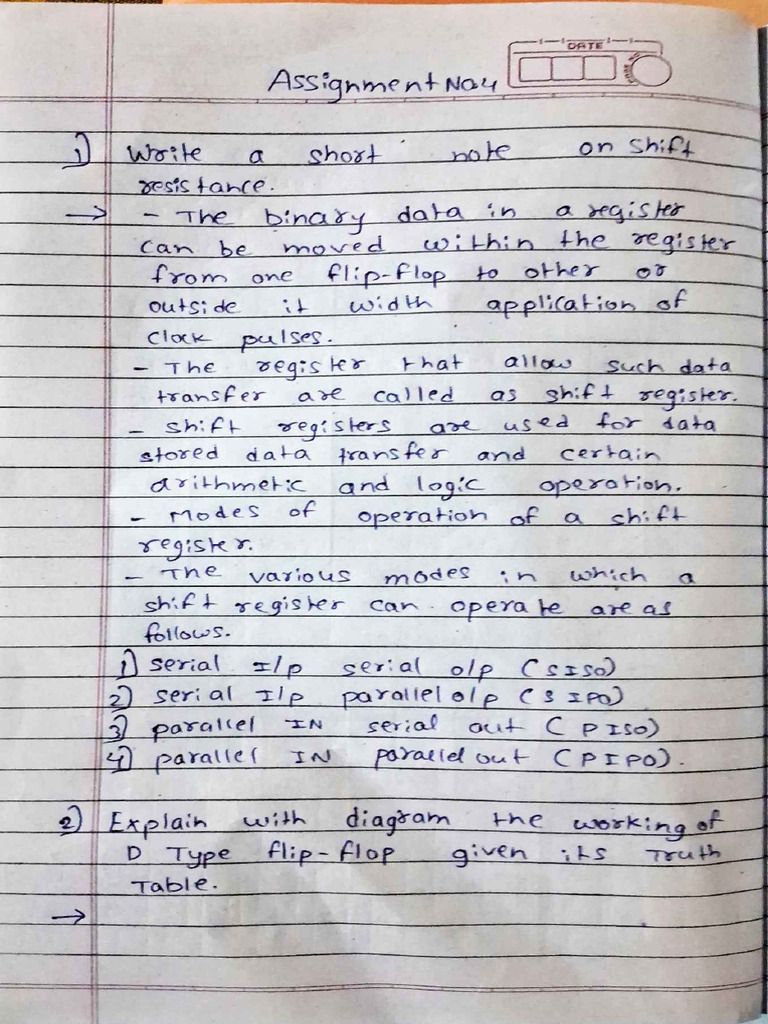 DATE
Assignment No 4
1) Write a short note on shift
resistance.
→ - The binary data in a register
can be moved within the register
from one flip-flop to other or
outside it width application of
clock pulses.
- The register that allow such data
transfer are called as shift register.
- shift registers are used for data
stored data transfer and certain
arithmetic and logic operation.
- Modes of operation of a shift
register.
- The various modes in which a
shift register can operate are as
follows.
1) serial I/p serial o/p (SISO)
2) serial I/p parallel o/p (SIPO)
3) parallel IN serial out (PISO)
4) parallel IN parallel out (PIPO).
2) Explain with diagram the working of
D Type flip-flop given its Truth
Table.
→